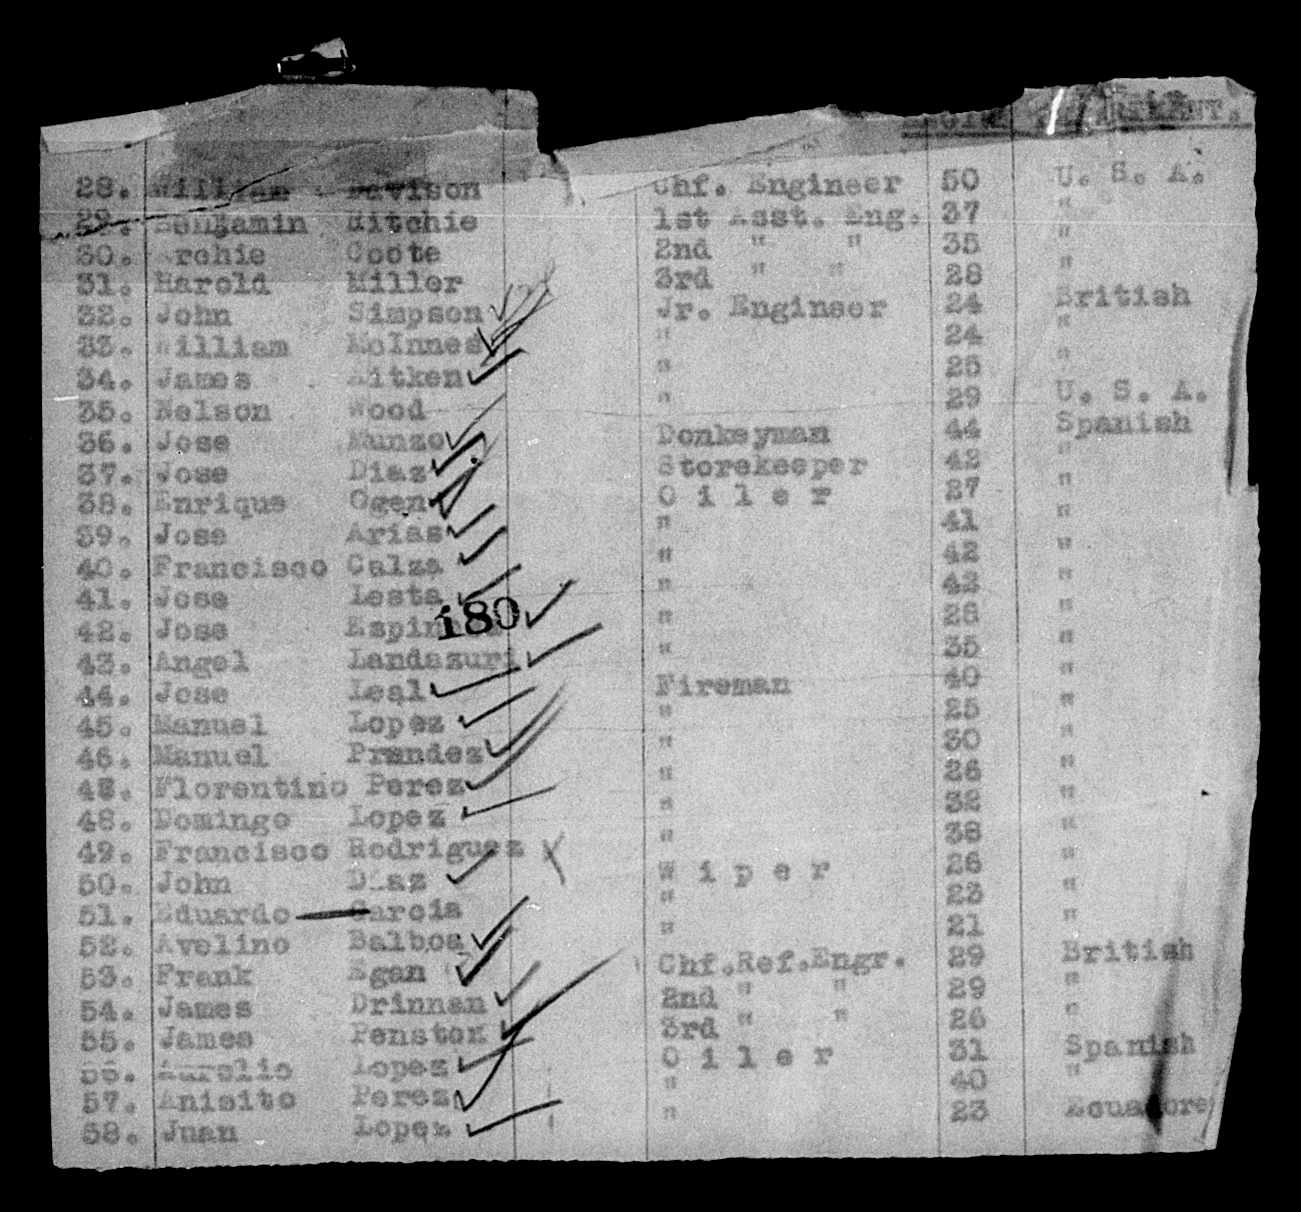 28. William Davison Chf. Engineer 50 U. S. A.
29. Benjamin Ritchie 1st Asst. Eng. 37 "
30. Archie Coote 2nd " " 35 "
31. Harold Miller 3rd " " 28 "
32. John Simpson Jr. Engineer 24 British
33. William McInnes " 24 "
34. James Aitken " 25 "
35. Nelson Wood " 29 U. S. A.
36. Jose Munzo Donkeyman 44 Spanish
37. Jose Diaz Storekeeper 42 "
38. Enrique Ogen O i l e r 27 "
39. Jose Arias " 41 "
40. Francisco Calza " 42 "
41. Jose Lesta " 42 "
180
42. Jose " 28 "
43. Angel Landazuri " 35 "
44. Jose Leal Fireman 40 "
45. Manuel Lopez " 25 "
46. Manuel Prandez " 30 "
47. Florentino Perez " 26 "
48. Domingo Lopez " 32 "
49. Francisco Rodriguez " 38 "
50. John Diaz W i p e r 26 "
51. Eduardo Garcia " 23 "
52. Avelino Balboa " 21 "
53. Frank Egan Chf.Ref.Engr. 29 British
54. James Drinnan 2nd " " 29 "
55. James Fenston 3rd " " 26 "
56. Aurelio Lopez O i l e r 31 Spanish
57. Anisito Perez " 40 "
58. Juan Lopez " 23